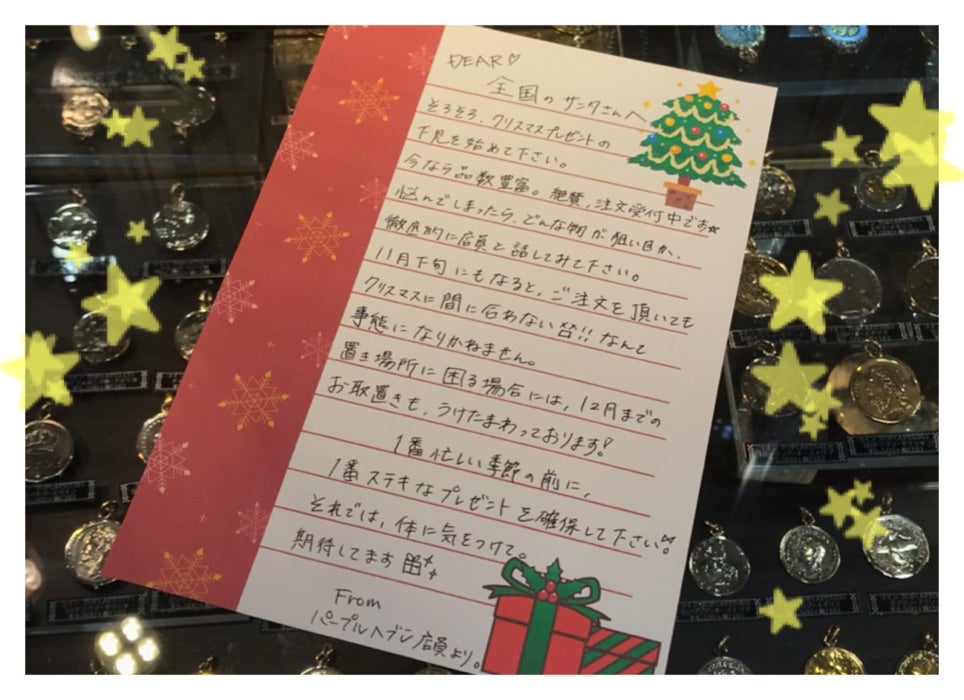 DEAR♡
全国のサンタさんへ
そろそろ、クリスマスプレゼントの
下見を始めて下さい。
今なら品数豊富。絶賛、注文受付中です☆
悩んでしまったら、どんな物が狙い目か、
徹底的に店員と話してみて下さい。
11月下旬にもなると、ご注文を頂いても
クリスマスに間に合わない旨!! なんて
事態になりかねません。
置き場所に困る場合には、12月までの
お取置きも、うけたまわっております!
1番忙しい季節の前に、
1番ステキなプレゼントを確保して下さい!
それでは、体に気をつけて。
期待してます
From
パープルヘブン店員より。